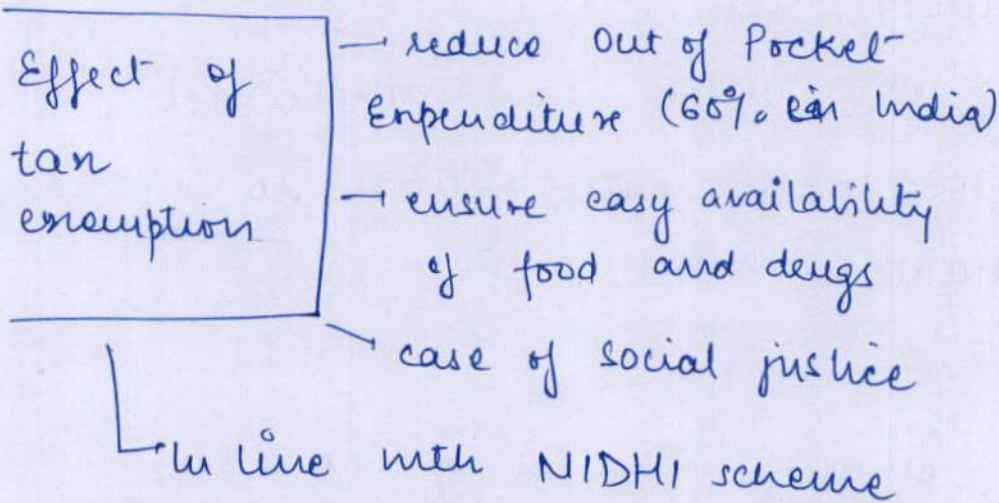 Effect of
tax
exemption
→ reduce Out of Pocket
Expenditure (60% in India)
→ ensure easy availability
of food and drugs
→ case of social justice
In line with NIDHI scheme